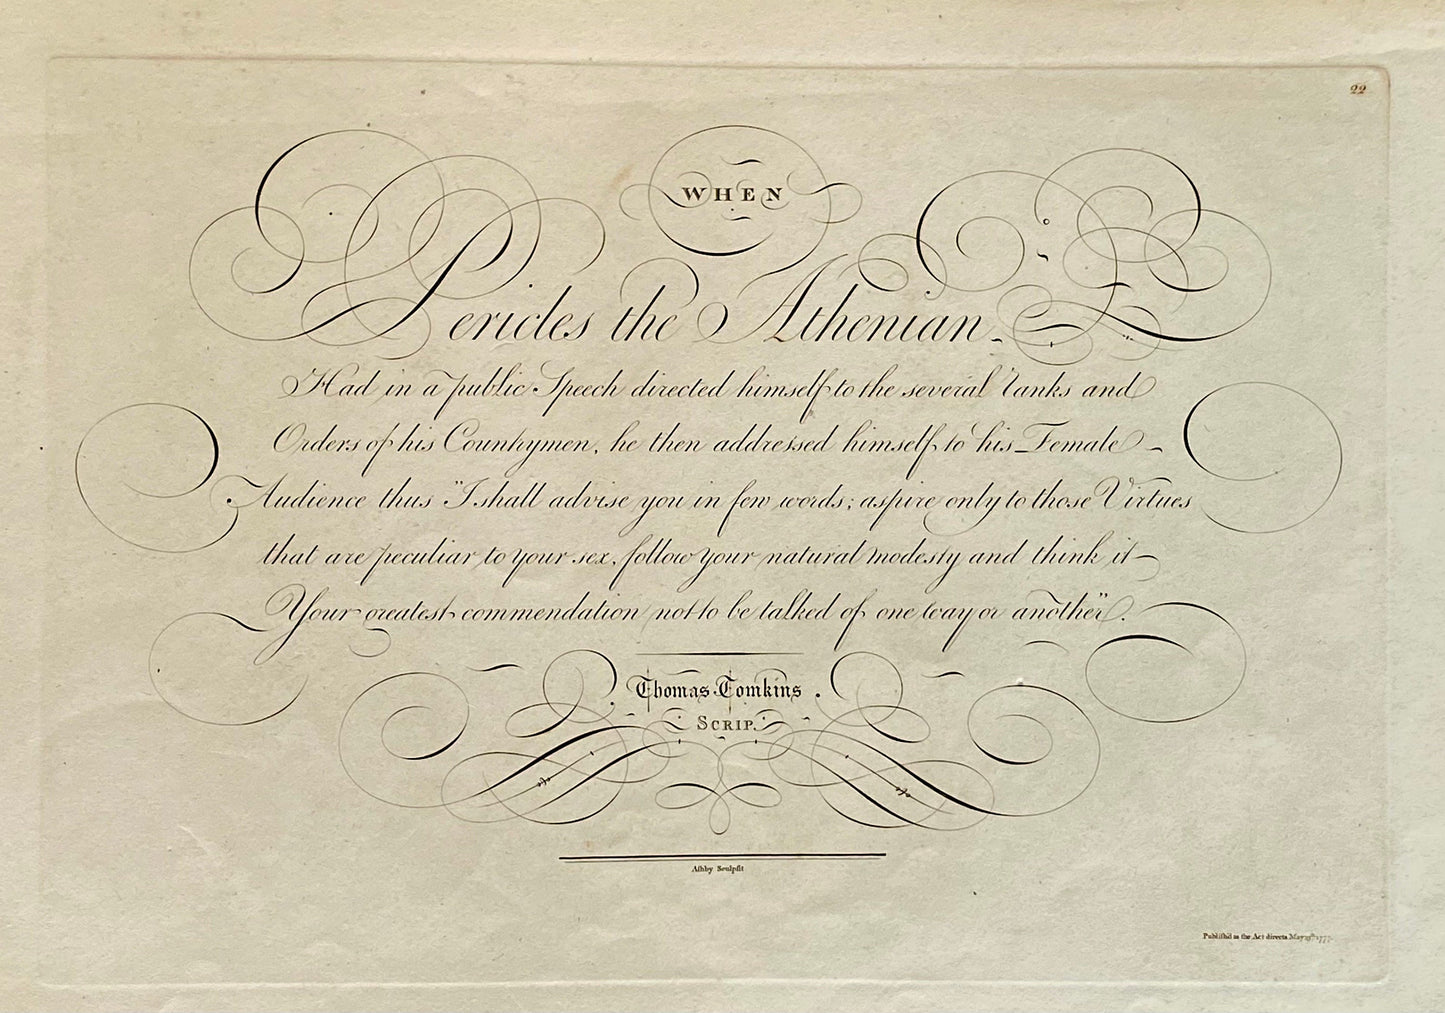 22
WHEN
Pericles the Athenian
Had in a public Speech directed himself to the several ranks and
Orders of his Countrymen, he then addressed himself to his Female
Audience thus "I shall advise you in few words; aspire only to those Virtues
that are peculiar to your sex, follow your natural modesty and think it
Your greatest commendation not to be talked of one way or another".
Thomas Tomkins.
SCRIP.
Aſhby Sculpſit
Publiſhd as the Act directs May 19th 1777.